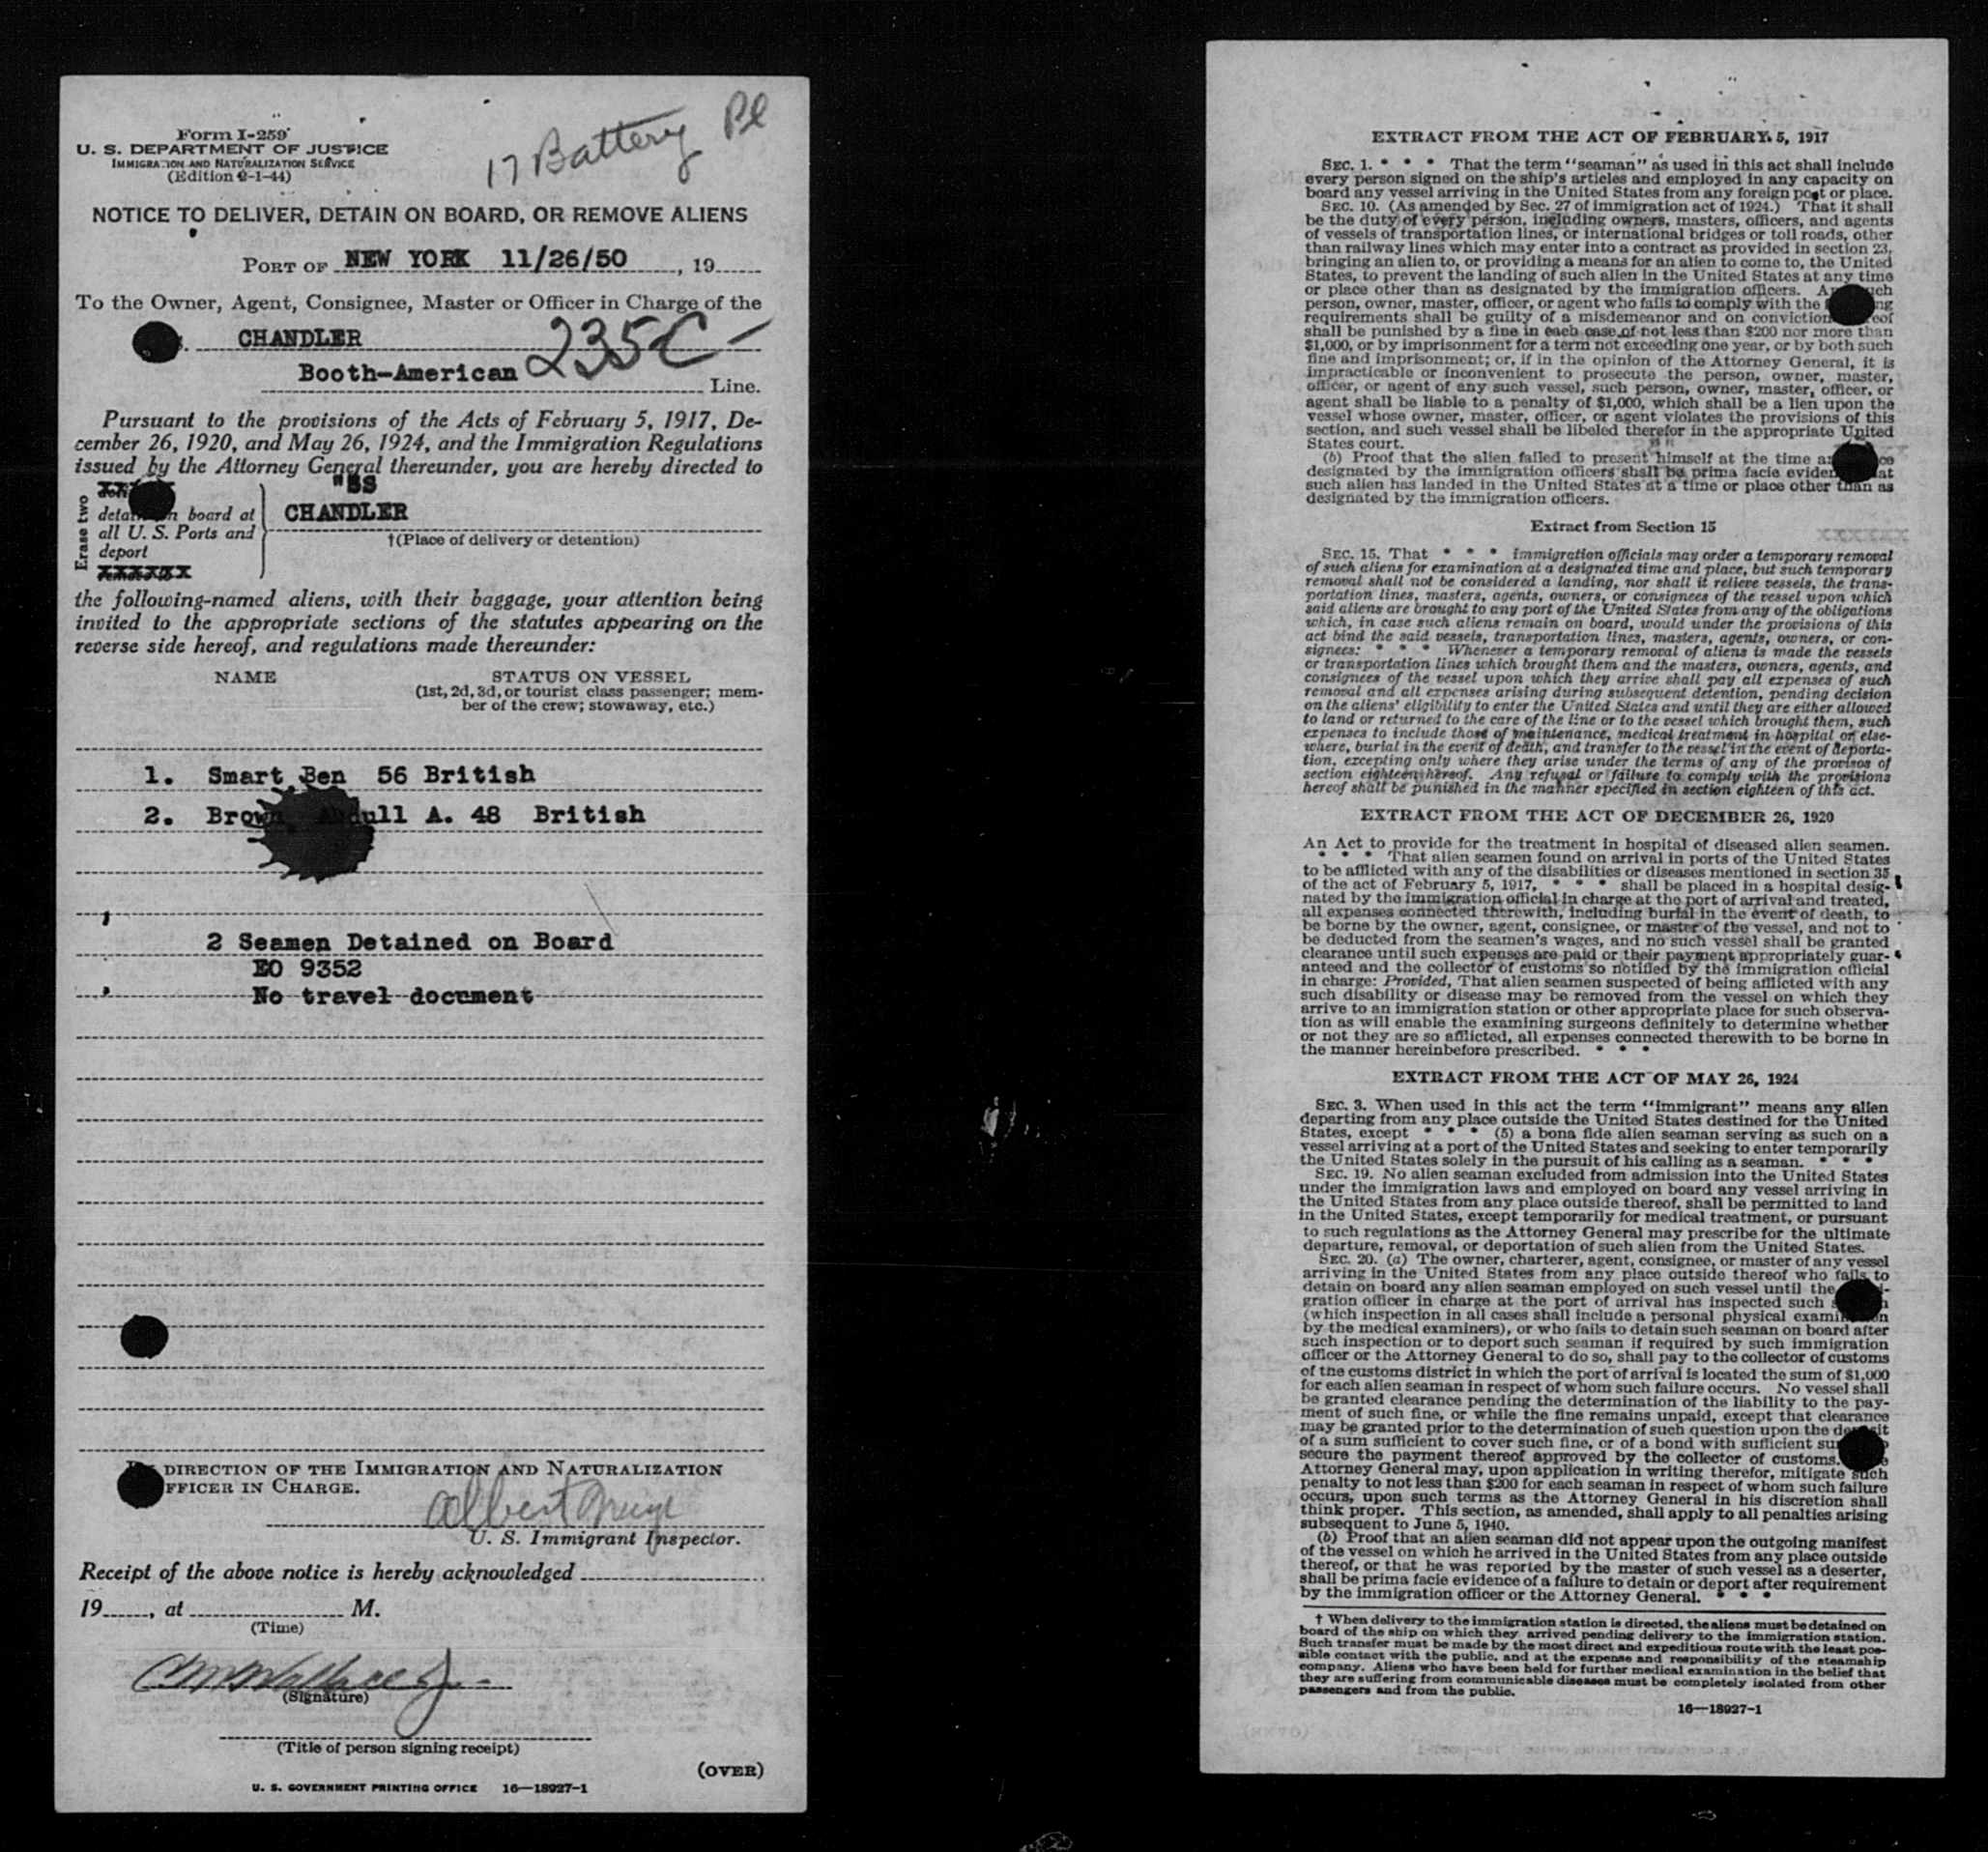 Form I-259
U. S. DEPARTMENT OF JUSTICE
IMMIGRATION AND NATURALIZATION SERVICE
(Edition 2-1-44)
17 Battery Pl
NOTICE TO DELIVER, DETAIN ON BOARD, OR REMOVE ALIENS
PORT OF NEW YORK 11/26/50, 19
To the Owner, Agent, Consignee, Master or Officer in Charge of the
CHANDLER
235C-
Booth-American Line.
Pursuant to the provisions of the Acts of February 5, 1917, De-
cember 26, 1920, and May 26, 1924, and the Immigration Regulations
issued by the Attorney General thereunder, you are hereby directed to
Erase two
"SS
board at CHANDLER
all U. S. Ports and †(Place of delivery or detention)
deport
XXXXXX
the following-named aliens, with their baggage, your attention being
invited to the appropriate sections of the statutes appearing on the
reverse side hereof, and regulations made thereunder:
NAME STATUS ON VESSEL
(1st, 2d, 3d, or tourist class passenger; mem-
ber of the crew; stowaway, etc.)
1. Smart Ben 56 British
2. Brown A. 48 British
2 Seamen Detained on Board
EO 9352
No travel document
DIRECTION OF THE IMMIGRATION AND NATURALIZATION
OFFICER IN CHARGE.
Albert
U. S. Immigrant Inspector.
Receipt of the above notice is hereby acknowledged
19, at M.
(Time)
Wallace Jr
(Signature)
(Title of person signing receipt)
(OVER)
U. S. GOVERNMENT PRINTING OFFICE 16—18927-1
EXTRACT FROM THE ACT OF FEBRUARY 5, 1917
SEC. 1. * * * That the term "seaman" as used in this act shall include
every person signed on the ship's articles and employed in any capacity on
board any vessel arriving in the United States from any foreign port or place.
SEC. 10. (As amended by Sec. 27 of immigration act of 1924.) That it shall
be the duty of every person, including owners, masters, officers, and agents
of vessels of transportation lines, or international bridges or toll roads, other
than railway lines which may enter into a contract as provided in section 23,
bringing an alien to, or providing a means for an alien to come to, the United
States, to prevent the landing of such alien in the United States at any time
or place other than as designated by the immigration officers. Any such
person, owner, master, officer, or agent who fails to comply with the
requirements shall be guilty of a misdemeanor and on conviction thereof
shall be punished by a fine in each case of not less than $200 nor more than
$1,000, or by imprisonment for a term not exceeding one year, or by both such
fine and imprisonment; or, if in the opinion of the Attorney General, it is
impracticable or inconvenient to prosecute the person, owner, master,
officer, or agent of any such vessel, such person, owner, master, officer, or
agent shall be liable to a penalty of $1,000, which shall be a lien upon the
vessel whose owner, master, officer, or agent violates the provisions of this
section, and such vessel shall be libeled therefor in the appropriate United
States court.
(b) Proof that the alien failed to present himself at the time and place
designated by the immigration officers shall be prima facie evidence that
such alien has landed in the United States at a time or place other than as
designated by the immigration officers.
Extract from Section 15
SEC. 15. That * * * immigration officials may order a temporary removal
of such aliens for examination at a designated time and place, but such temporary
removal shall not be considered a landing, nor shall it relieve vessels, the trans-
portation lines, masters, agents, owners, or consignees of the vessel upon which
said aliens are brought to any port of the United States from any of the obligations
which, in case such aliens remain on board, would under the provisions of this
act bind the said vessels, transportation lines, masters, agents, owners, or con-
signees: * * * Whenever a temporary removal of aliens is made the vessels
or transportation lines which brought them and the masters, owners, agents, and
consignees of the vessel upon which they arrive shall pay all expenses of such
removal and all expenses arising during subsequent detention, pending decision
on the aliens' eligibility to enter the United States and until they are either allowed
to land or returned to the care of the line or to the vessel which brought them, such
expenses to include those of maintenance, medical treatment in hospital or else-
where, burial in the event of death, and transfer to the vessel in the event of deporta-
tion, excepting only where they arise under the terms of any of the provisos of
section eighteen hereof. Any refusal or failure to comply with the provisions
hereof shall be punished in the manner specified in section eighteen of this act.
EXTRACT FROM THE ACT OF DECEMBER 26, 1920
An Act to provide for the treatment in hospital of diseased alien seamen.
* * * That alien seamen found on arrival in ports of the United States
to be afflicted with any of the disabilities or diseases mentioned in section 35
of the act of February 5, 1917, * * * shall be placed in a hospital desig-
nated by the immigration official in charge at the port of arrival and treated,
all expenses connected therewith, including burial in the event of death, to
be borne by the owner, agent, consignee, or master of the vessel, and not to
be deducted from the seamen's wages, and no such vessel shall be granted
clearance until such expenses are paid or their payment appropriately guar-
anteed and the collector of customs so notified by the immigration official
in charge: Provided, That alien seamen suspected of being afflicted with any
such disability or disease may be removed from the vessel on which they
arrive to an immigration station or other appropriate place for such observa-
tion as will enable the examining surgeons definitely to determine whether
or not they are so afflicted, all expenses connected therewith to be borne in
the manner hereinbefore prescribed. * * *
EXTRACT FROM THE ACT OF MAY 26, 1924
SEC. 3. When used in this act the term "immigrant" means any alien
departing from any place outside the United States destined for the United
States, except * * * (5) a bona fide alien seaman serving as such on a
vessel arriving at a port of the United States and seeking to enter temporarily
the United States solely in the pursuit of his calling as a seaman. * * *
SEC. 19. No alien seaman excluded from admission into the United States
under the immigration laws and employed on board any vessel arriving in
the United States from any place outside thereof, shall be permitted to land
in the United States, except temporarily for medical treatment, or pursuant
to such regulations as the Attorney General may prescribe for the ultimate
departure, removal, or deportation of such alien from the United States.
SEC. 20. (a) The owner, charterer, agent, consignee, or master of any vessel
arriving in the United States from any place outside thereof who fails to
detain on board any alien seaman employed on such vessel until the immi-
gration officer in charge at the port of arrival has inspected such seaman
(which inspection in all cases shall include a personal physical examination
by the medical examiners), or who fails to detain such seaman on board after
such inspection or to deport such seaman if required by such immigration
officer or the Attorney General to do so, shall pay to the collector of customs
of the customs district in which the port of arrival is located the sum of $1,000
for each alien seaman in respect of whom such failure occurs. No vessel shall
be granted clearance pending the determination of the liability to the pay-
ment of such fine, or while the fine remains unpaid, except that clearance
may be granted prior to the determination of such question upon the deposit
of a sum sufficient to cover such fine, or of a bond with sufficient surety to
secure the payment thereof approved by the collector of customs. The
Attorney General may, upon application in writing therefor, mitigate such
penalty to not less than $200 for each seaman in respect of whom such failure
occurs, upon such terms as the Attorney General in his discretion shall
think proper. This section, as amended, shall apply to all penalties arising
subsequent to June 5, 1940.
(b) Proof that an alien seaman did not appear upon the outgoing manifest
of the vessel on which he arrived in the United States from any place outside
thereof, or that he was reported by the master of such vessel as a deserter,
shall be prima facie evidence of a failure to detain or deport after requirement
by the immigration officer or the Attorney General. * * *
† When delivery to the immigration station is directed, the aliens must be detained on
board of the ship on which they arrived pending delivery to the immigration station.
Such transfer must be made by the most direct and expeditious route with the least pos-
sible contact with the public, and at the expense and responsibility of the steamship
company. Aliens who have been held for further medical examination in the belief that
they are suffering from communicable diseases must be completely isolated from other
passengers and from the public.
16—18927-1